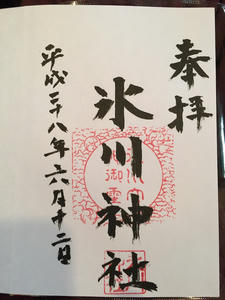 奉拝
氷川神社
平成二十八年六月十二日